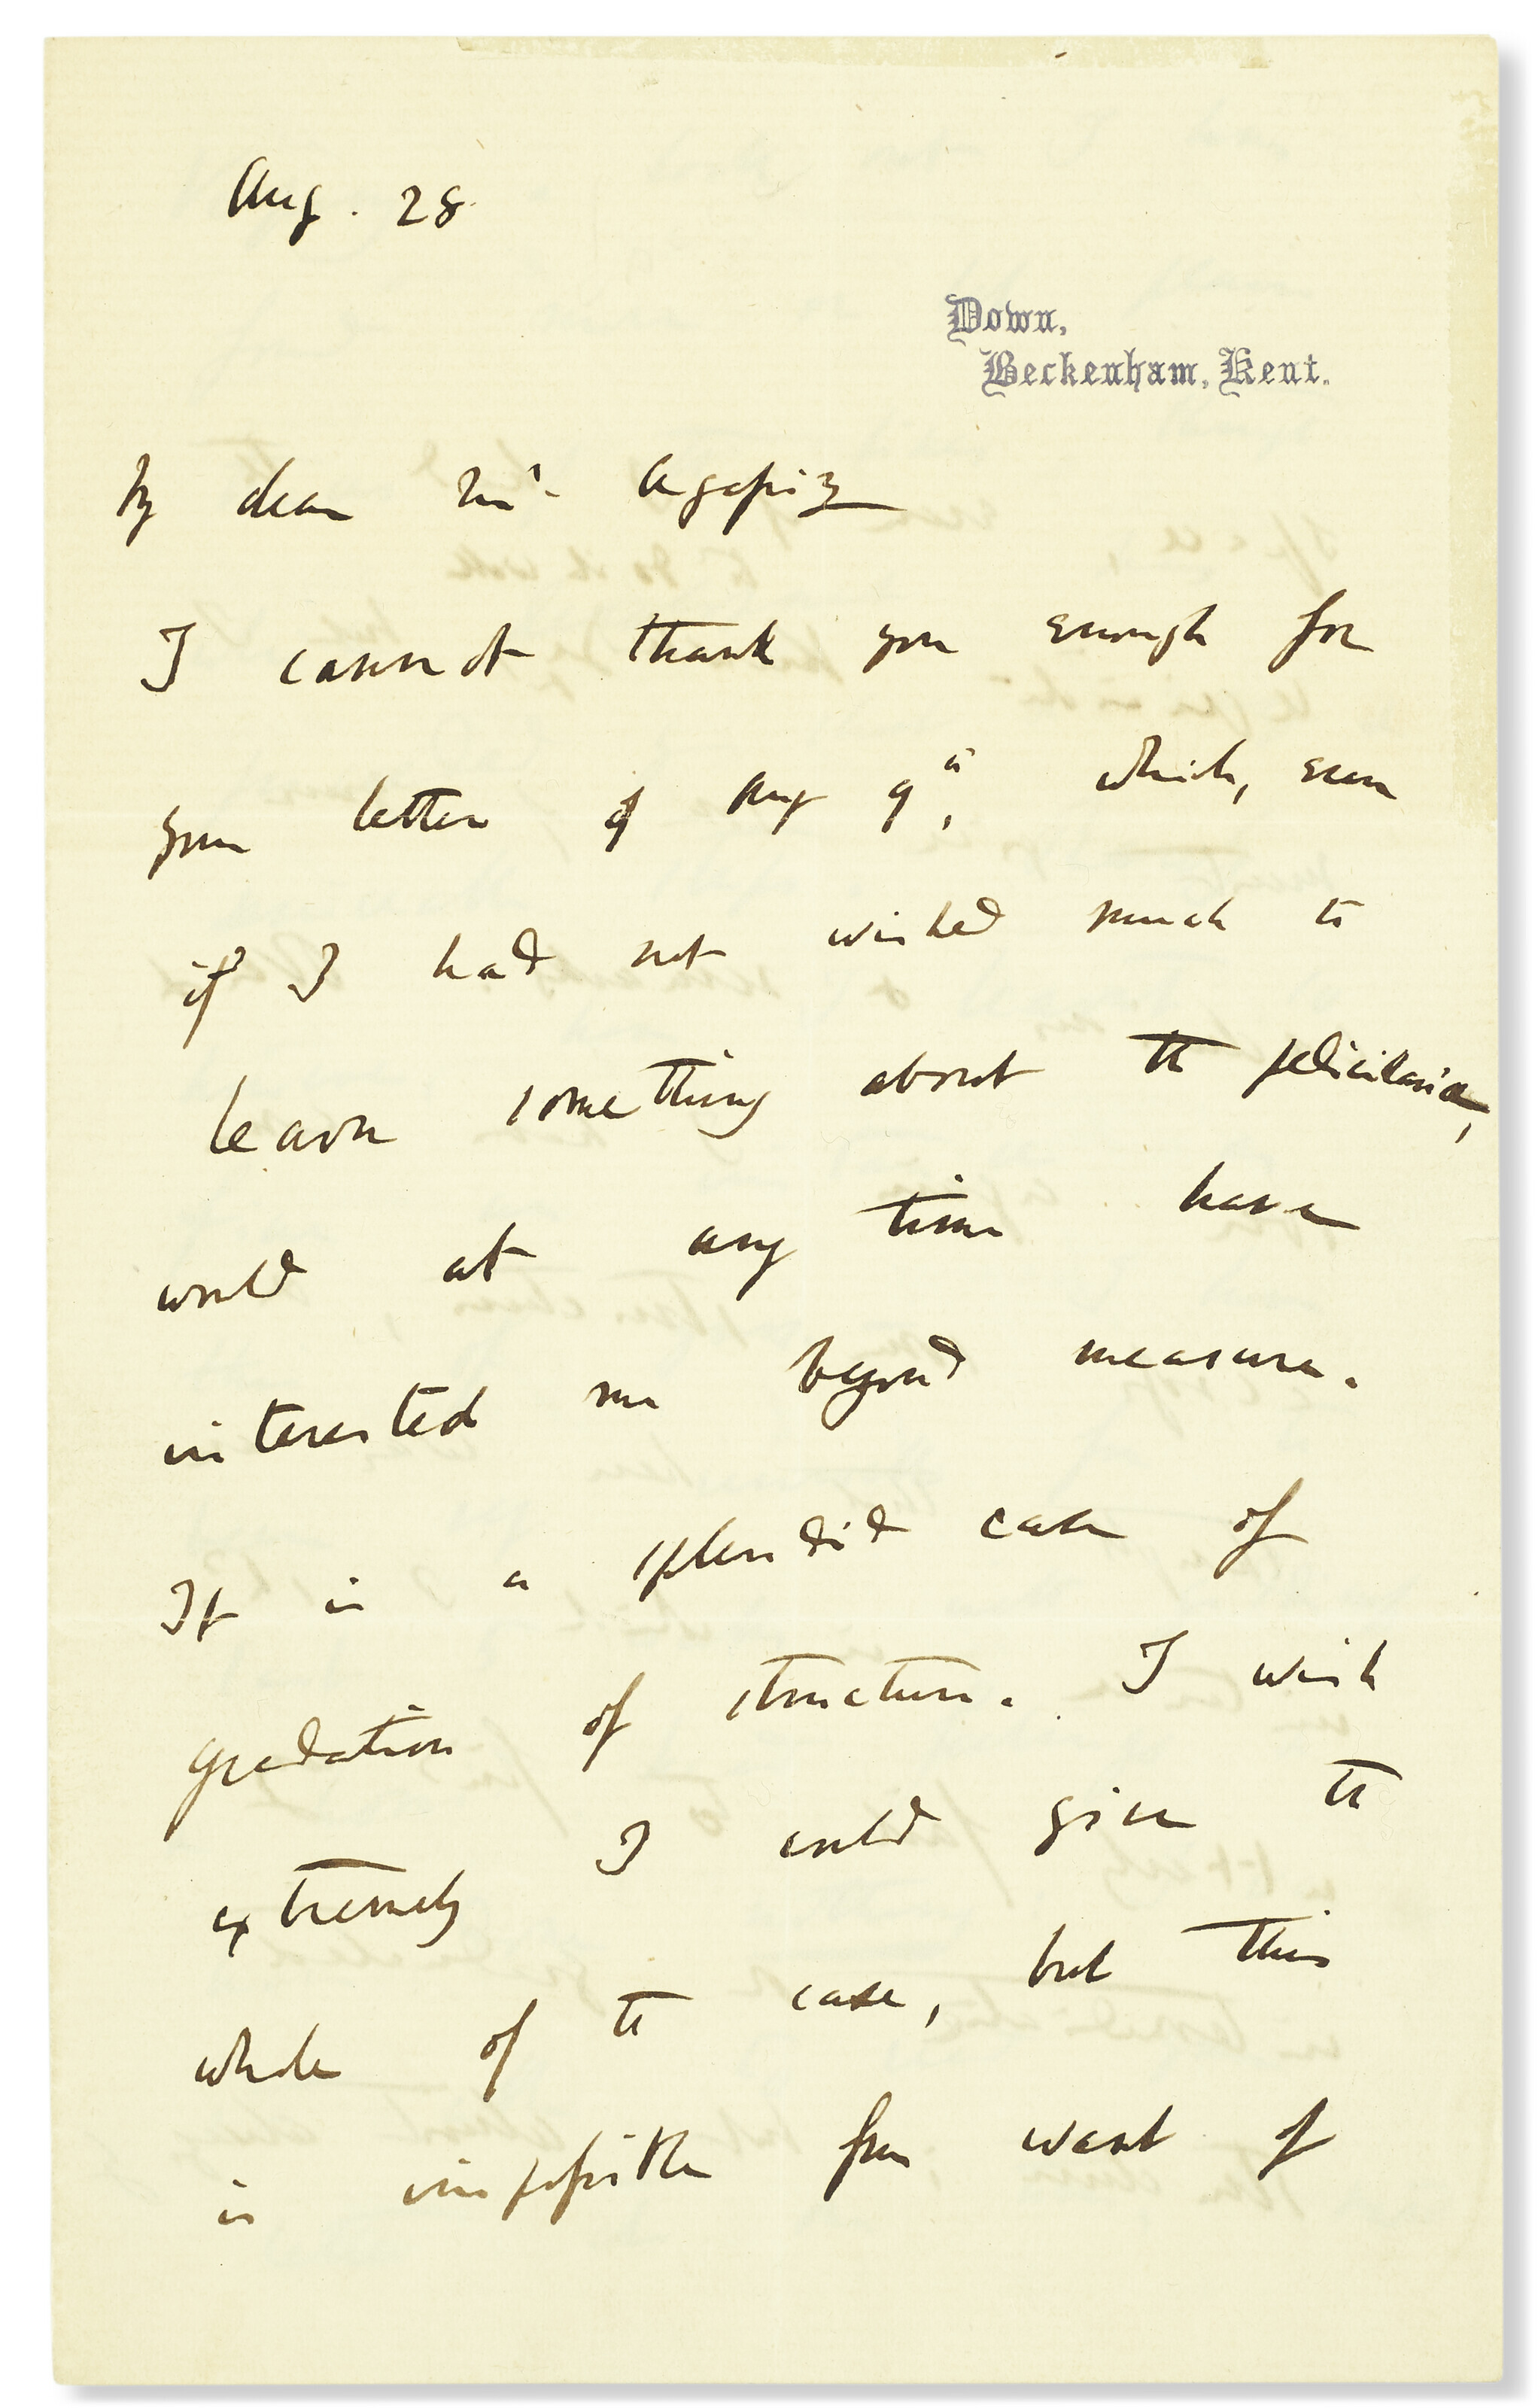 Aug. 28
Down,
Beckenham, Kent.
My dear Mr. Agassiz
I cannot thank you enough for
your letter of Aug 9th, which, even
if I had not wished much to
learn something about the pedicellariæ,
would at any time have
interested me beyond measure.
It is a splendid case of
gradation of structure. I wish
extremely I could give the
whole of the case, but this
is impossible from want of